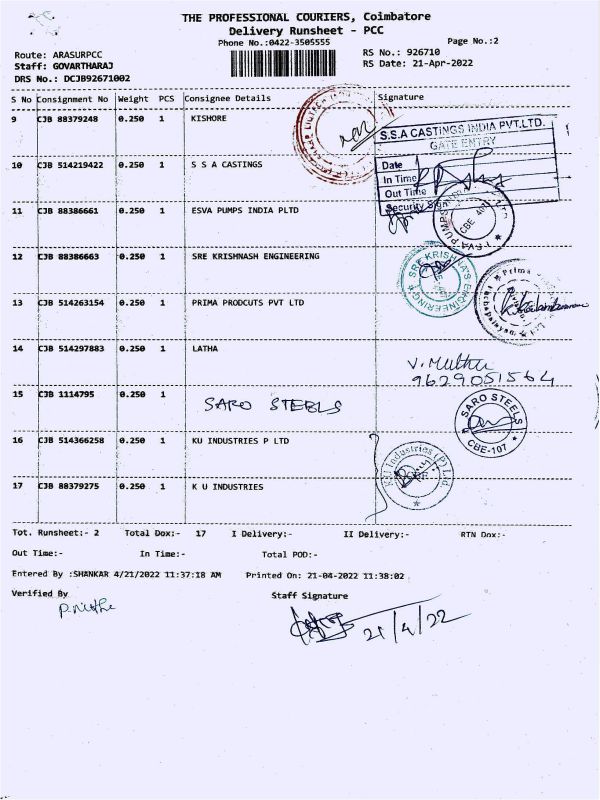 THE PROFESSIONAL COURIERS, Coimbatore
Delivery Runsheet - PCC
Phone No.:0422-3505555
Page No.:2
Route: ARASURPCC
RS No.: 926710
Staff: GOVARTHARAJ
RS Date: 21-Apr-2022
DRS No.: DCJB92671002
S No Consignment No Weight PCS Consignee Details Signature
9 CJB 88379248 0.250 1 KISHORE
S.S.A CASTINGS INDIA PVT.LTD.
GATE ENTRY
Date
In Time
Out Time
Security Sign
10 CJB 514219422 0.250 1 S S A CASTINGS
11 CJB 88386661 0.250 1 ESVA PUMPS INDIA PLTD
12 CJB 88386663 0.250 1 SRE KRISHNASH ENGINEERING
13 CJB 514263154 0.250 1 PRIMA PRODCUTS PVT LTD
14 CJB 514297883 0.250 1 LATHA
V. Muthu
9629051564
15 CJB 1114795 0.250 1 SARO STEELS
SARO STEELS
CBE-107
16 CJB 514366258 0.250 1 KU INDUSTRIES P LTD
K.U Industries (P) Ltd.
17 CJB 88379275 0.250 1 K U INDUSTRIES
Tot. Runsheet:- 2 Total Dox:- 17 I Delivery:- II Delivery:- RTN Dox:-
Out Time:- In Time:- Total POD:-
Entered By :SHANKAR 4/21/2022 11:37:18 AM Printed On: 21-04-2022 11:38:02
Verified By Staff Signature
21/4/22